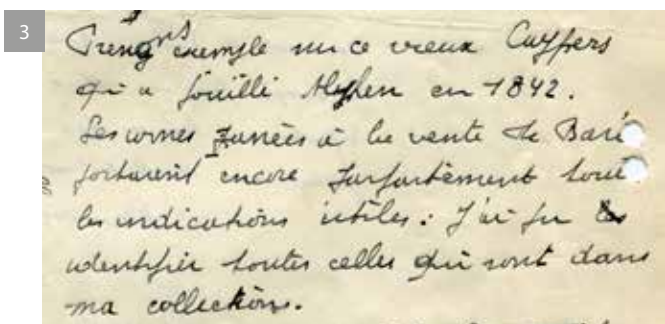 3
Prenons exemple sur ce vieux Cuypers
qui a fouillé Alphen en 1842.
Les urnes à la vente de
portaient encore parfaitement
les indications utiles : J'ai pu
identifier toutes celles qui sont dans
ma collection.